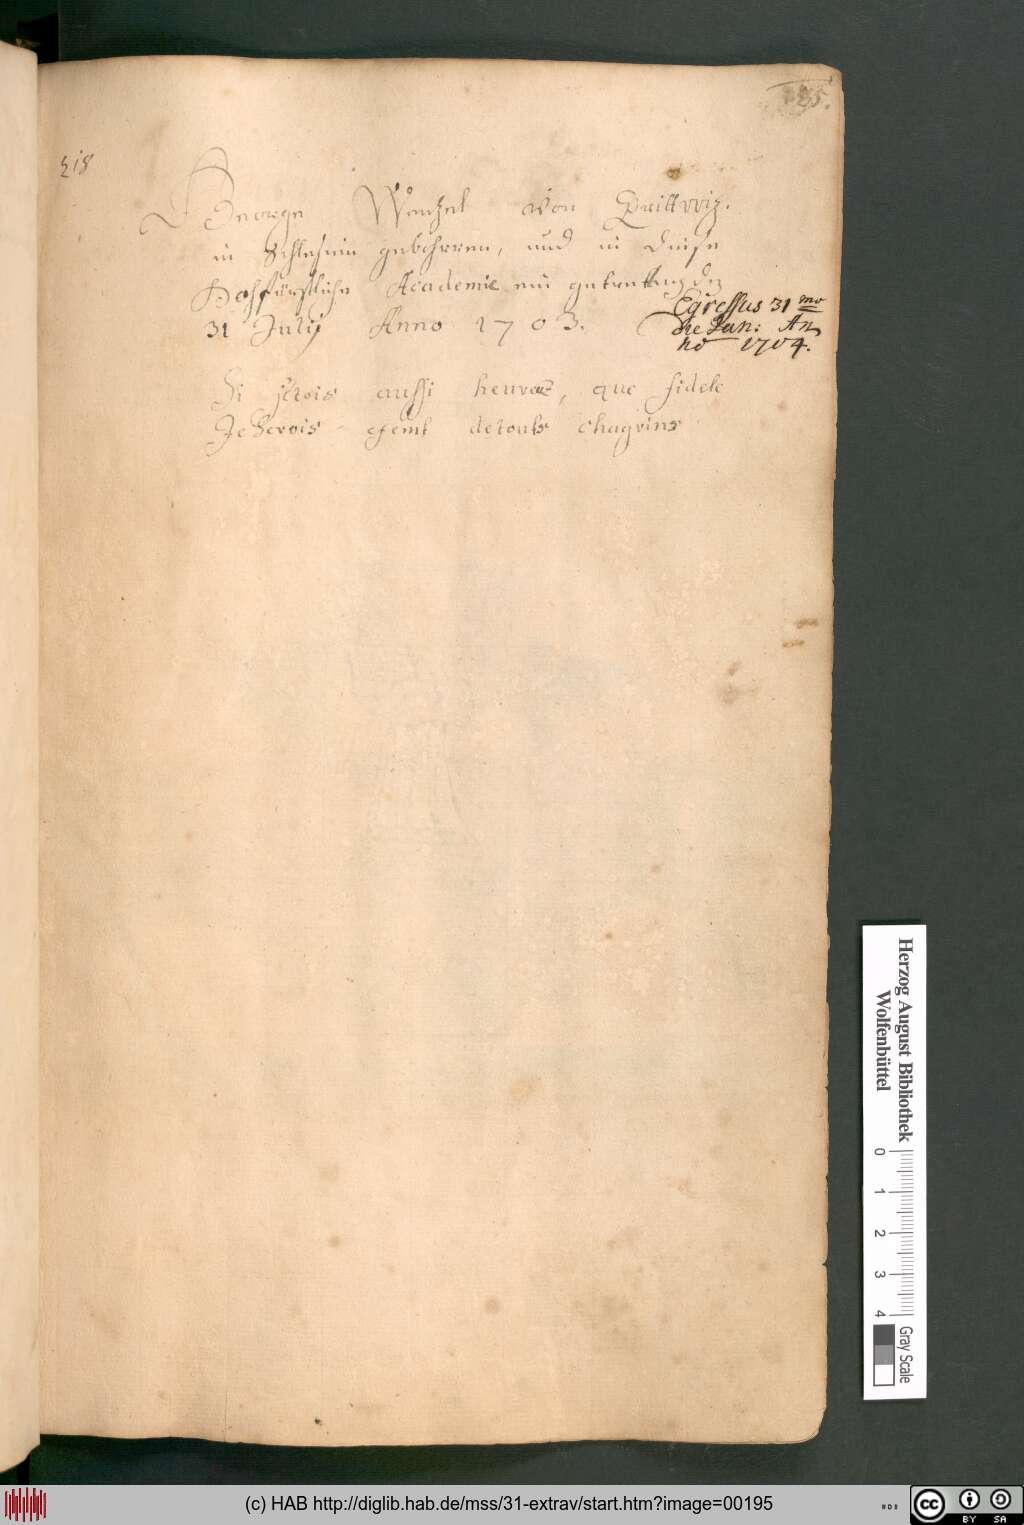 218
George Wenzel von Prittwiz.
in Schlesien gebohren, und in diese
Hochfürstliche Academie ein getretten den
31 July Anno 1703.
Egressus 31mo
die Jan: An
no 1704.
Si jetois aussi heureux, que fidele
Je Serois exemt de touts chagrins
Herzog August Bibliothek
Wolfenbüttel
0 1 2 3 4
Gray Scale
(c) HAB http://diglib.hab.de/mss/31-extrav/start.htm?image=00195
cc BY SA